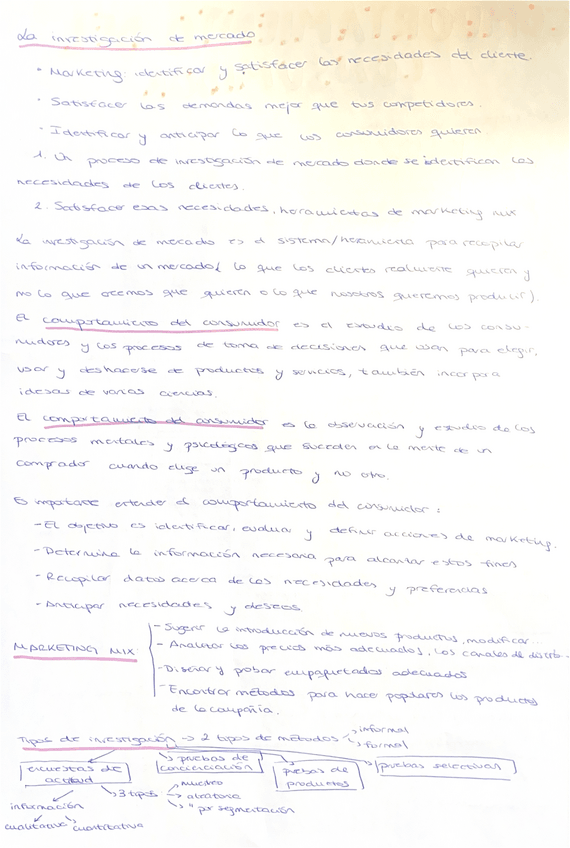 La investigación de mercado
· Marketing: identificar y satisfacer las necesidades del cliente.
· Satisfacer las demandas mejor que tus competidores.
· Identificar y anticipar lo que los consumidores quieren
1. Un proceso de investigación de mercado donde se identifican las
necesidades de los clientes.
2. Satisfacer esas necesidades, herramientas de marketing mix
La investigación de mercado es el sistema/herramienta para recopilar
información de un mercado ( lo que los clientes realmente quieren y
no lo que creemos que quieren o lo que nosotros queremos producir ).
El comportamiento del consumidor es el estudio de los consu-
midores y los procesos de toma de decisiones que usan para elegir,
usar y deshacerse de productos y servicios, también incorpora
ideas de varias ciencias.
El comportamiento del consumidor es la observación y estudio de los
procesos mentales y psicológicos que suceden en la mente de un
comprador cuando elige un producto y no otro.
Es importante entender el comportamiento del consumidor :
- El objetivo es identificar, evaluar y definir acciones de marketing.
- Determina la información necesaria para alcanzar estos fines
- Recopilar datos acerca de las necesidades y preferencias
- Anticipar necesidades y deseos
MARKETING MIX
- Sugerir la introducción de nuevos productos, modificar...
- Analizar los precios más adecuados, los canales de distrib..
- Diseñar y probar empaquetados adecuados
- Encontrar métodos para hacer populares los productos
de la compañía.
Tipos de investigación → 2 tipos de métodos
informal
formal
encuestas de
actitud
pruebas de
concienciación
pruebas de
productos
pruebas selectivas
información
cualitativa
cuantitativa
3 tipos
muestreo
aleatoria
" por segmentación